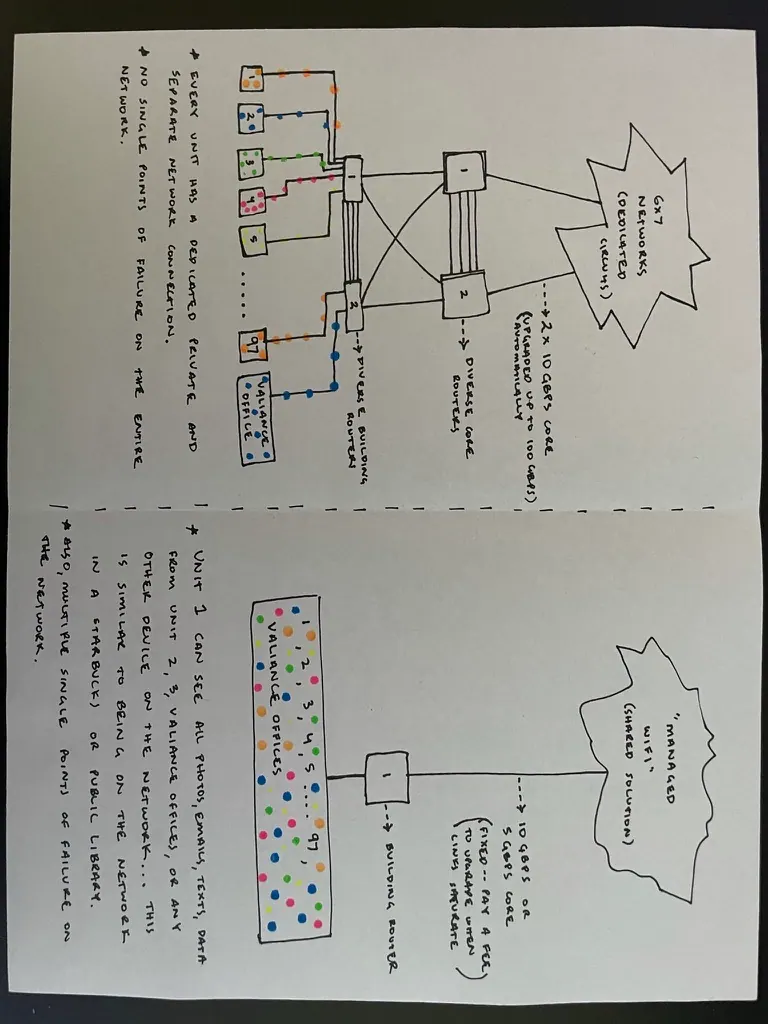 6X7
NETWORKS
(DEDICATED
CIRCUITS)
2 X 10 GBPS CORE
(UPGRADED UP TO 100 GBPS)
(AUTOMATICALLY)
1
2
DIVERSE CORE
ROUTERS
1
2
DIVERSE BUILDING
ROUTERS
1
2
3
4
5
.....
97
VALIANCE
OFFICE
* EVERY UNIT HAS A DEDICATED PRIVATE AND
SEPARATE NETWORK CONNECTION.
* NO SINGLE POINTS OF FAILURE ON THE ENTIRE
NETWORK.
"MANAGED
WIFI"
(SHARED SOLUTION)
10 GBPS OR
5 GBPS CORE
(FIXED -- PAY A FEE
TO UPGRADE WHEN
LINKS SATURATE)
1
BUILDING ROUTER
1, 2, 3, 4, 5 .... 97,
VALIANCE OFFICES
* UNIT 1 CAN SEE ALL PHOTOS, EMAILS, TEXTS, DATA
FROM UNIT 2, 3, VALIANCE OFFICES, OR ANY
OTHER DEVICE ON THE NETWORK... THIS
IS SIMILAR TO BEING ON THE NETWORK
IN A STARBUCKS OR PUBLIC LIBRARY.
* ALSO, MULTIPLE SINGLE POINTS OF FAILURE ON
THE NETWORK.